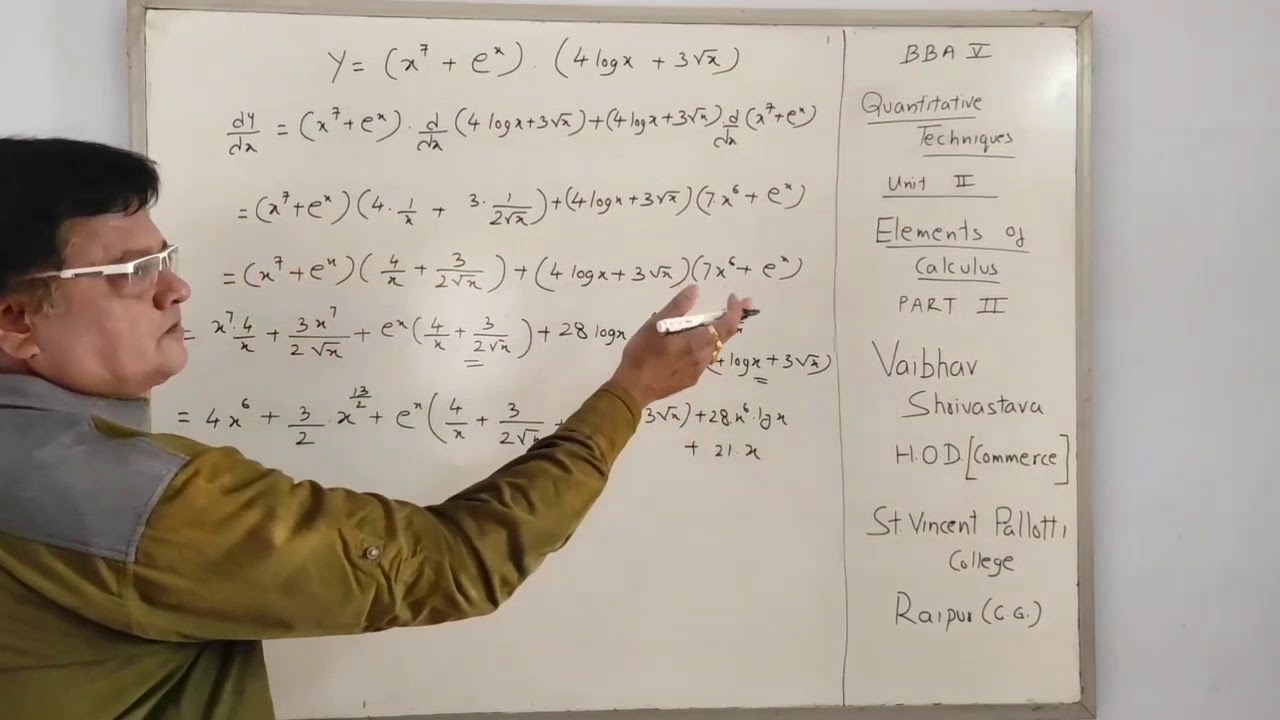 Y = (x⁷ + eˣ) . (4 logx + 3√x)
dy/dx = (x⁷ + eˣ) . d/dx (4 logx + 3√x) + (4 logx + 3√x) d/dx (x⁷ + eˣ)
= (x⁷ + eˣ) (4 . 1/x + 3 . 1/2√x) + (4 logx + 3√x) (7.x⁶ + eˣ)
= (x⁷ + eˣ) (4/x + 3/2√x) + (4 logx + 3√x) (7x⁶ + eˣ)
= x⁷.4/x + 3x⁷/2√x + eˣ (4/x + 3/2√x) + 28 logx
logx + 3√x)
= 4x⁶ + 3/2 . x^13/2 + eˣ (4/x + 3/2√x + 3√x) + 28.x⁶.lgx
+ 21.x
BBA V
Quantitative
Techniques
Unit II
Elements of
Calculus
PART II
Vaibhav
Shrivastava
H.O.D [Commerce]
St. Vincent Pallotti
College
Raipur (C.G.)